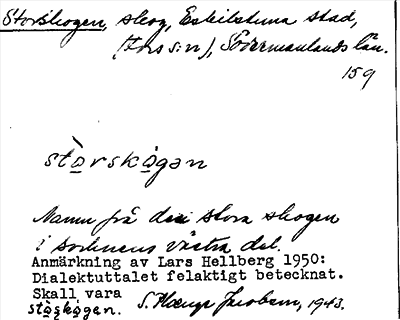 Storskogen, skog, Eskilstuna stad,
(Fors s:n), Södermanlands län.
159
stòrskogan
Namn på den stora skogen
i socknens västra del.
Anmärkning av Lars Hellberg 1950:
Dialektuttalet felaktigt betecknat.
Skall vara
S. Jacobsen, 1943.